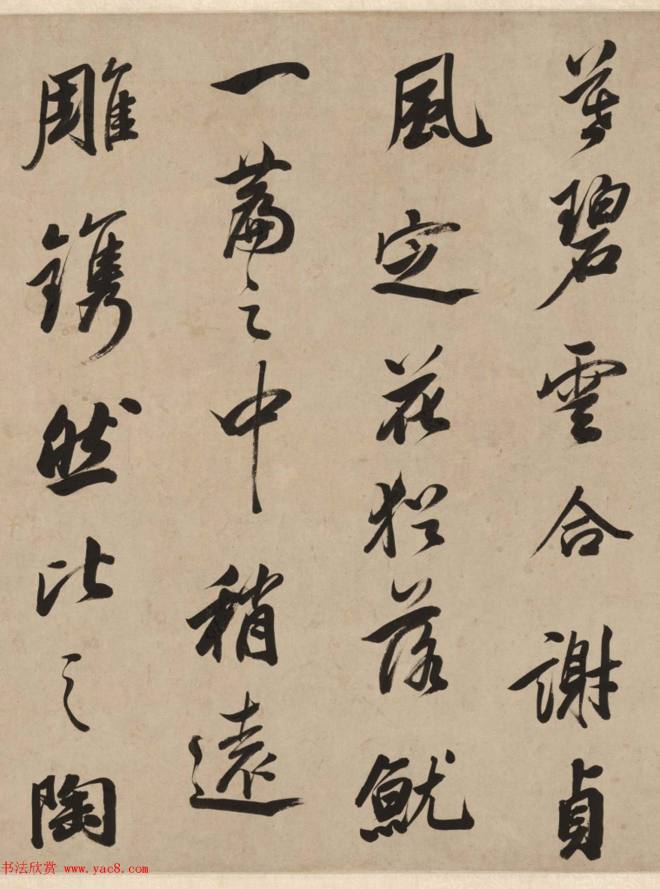 暮碧雲合謝貞
風定花猶落就
一篇之中稍遠
雕鐫然比之陶
书法欣赏 www.yac8.com